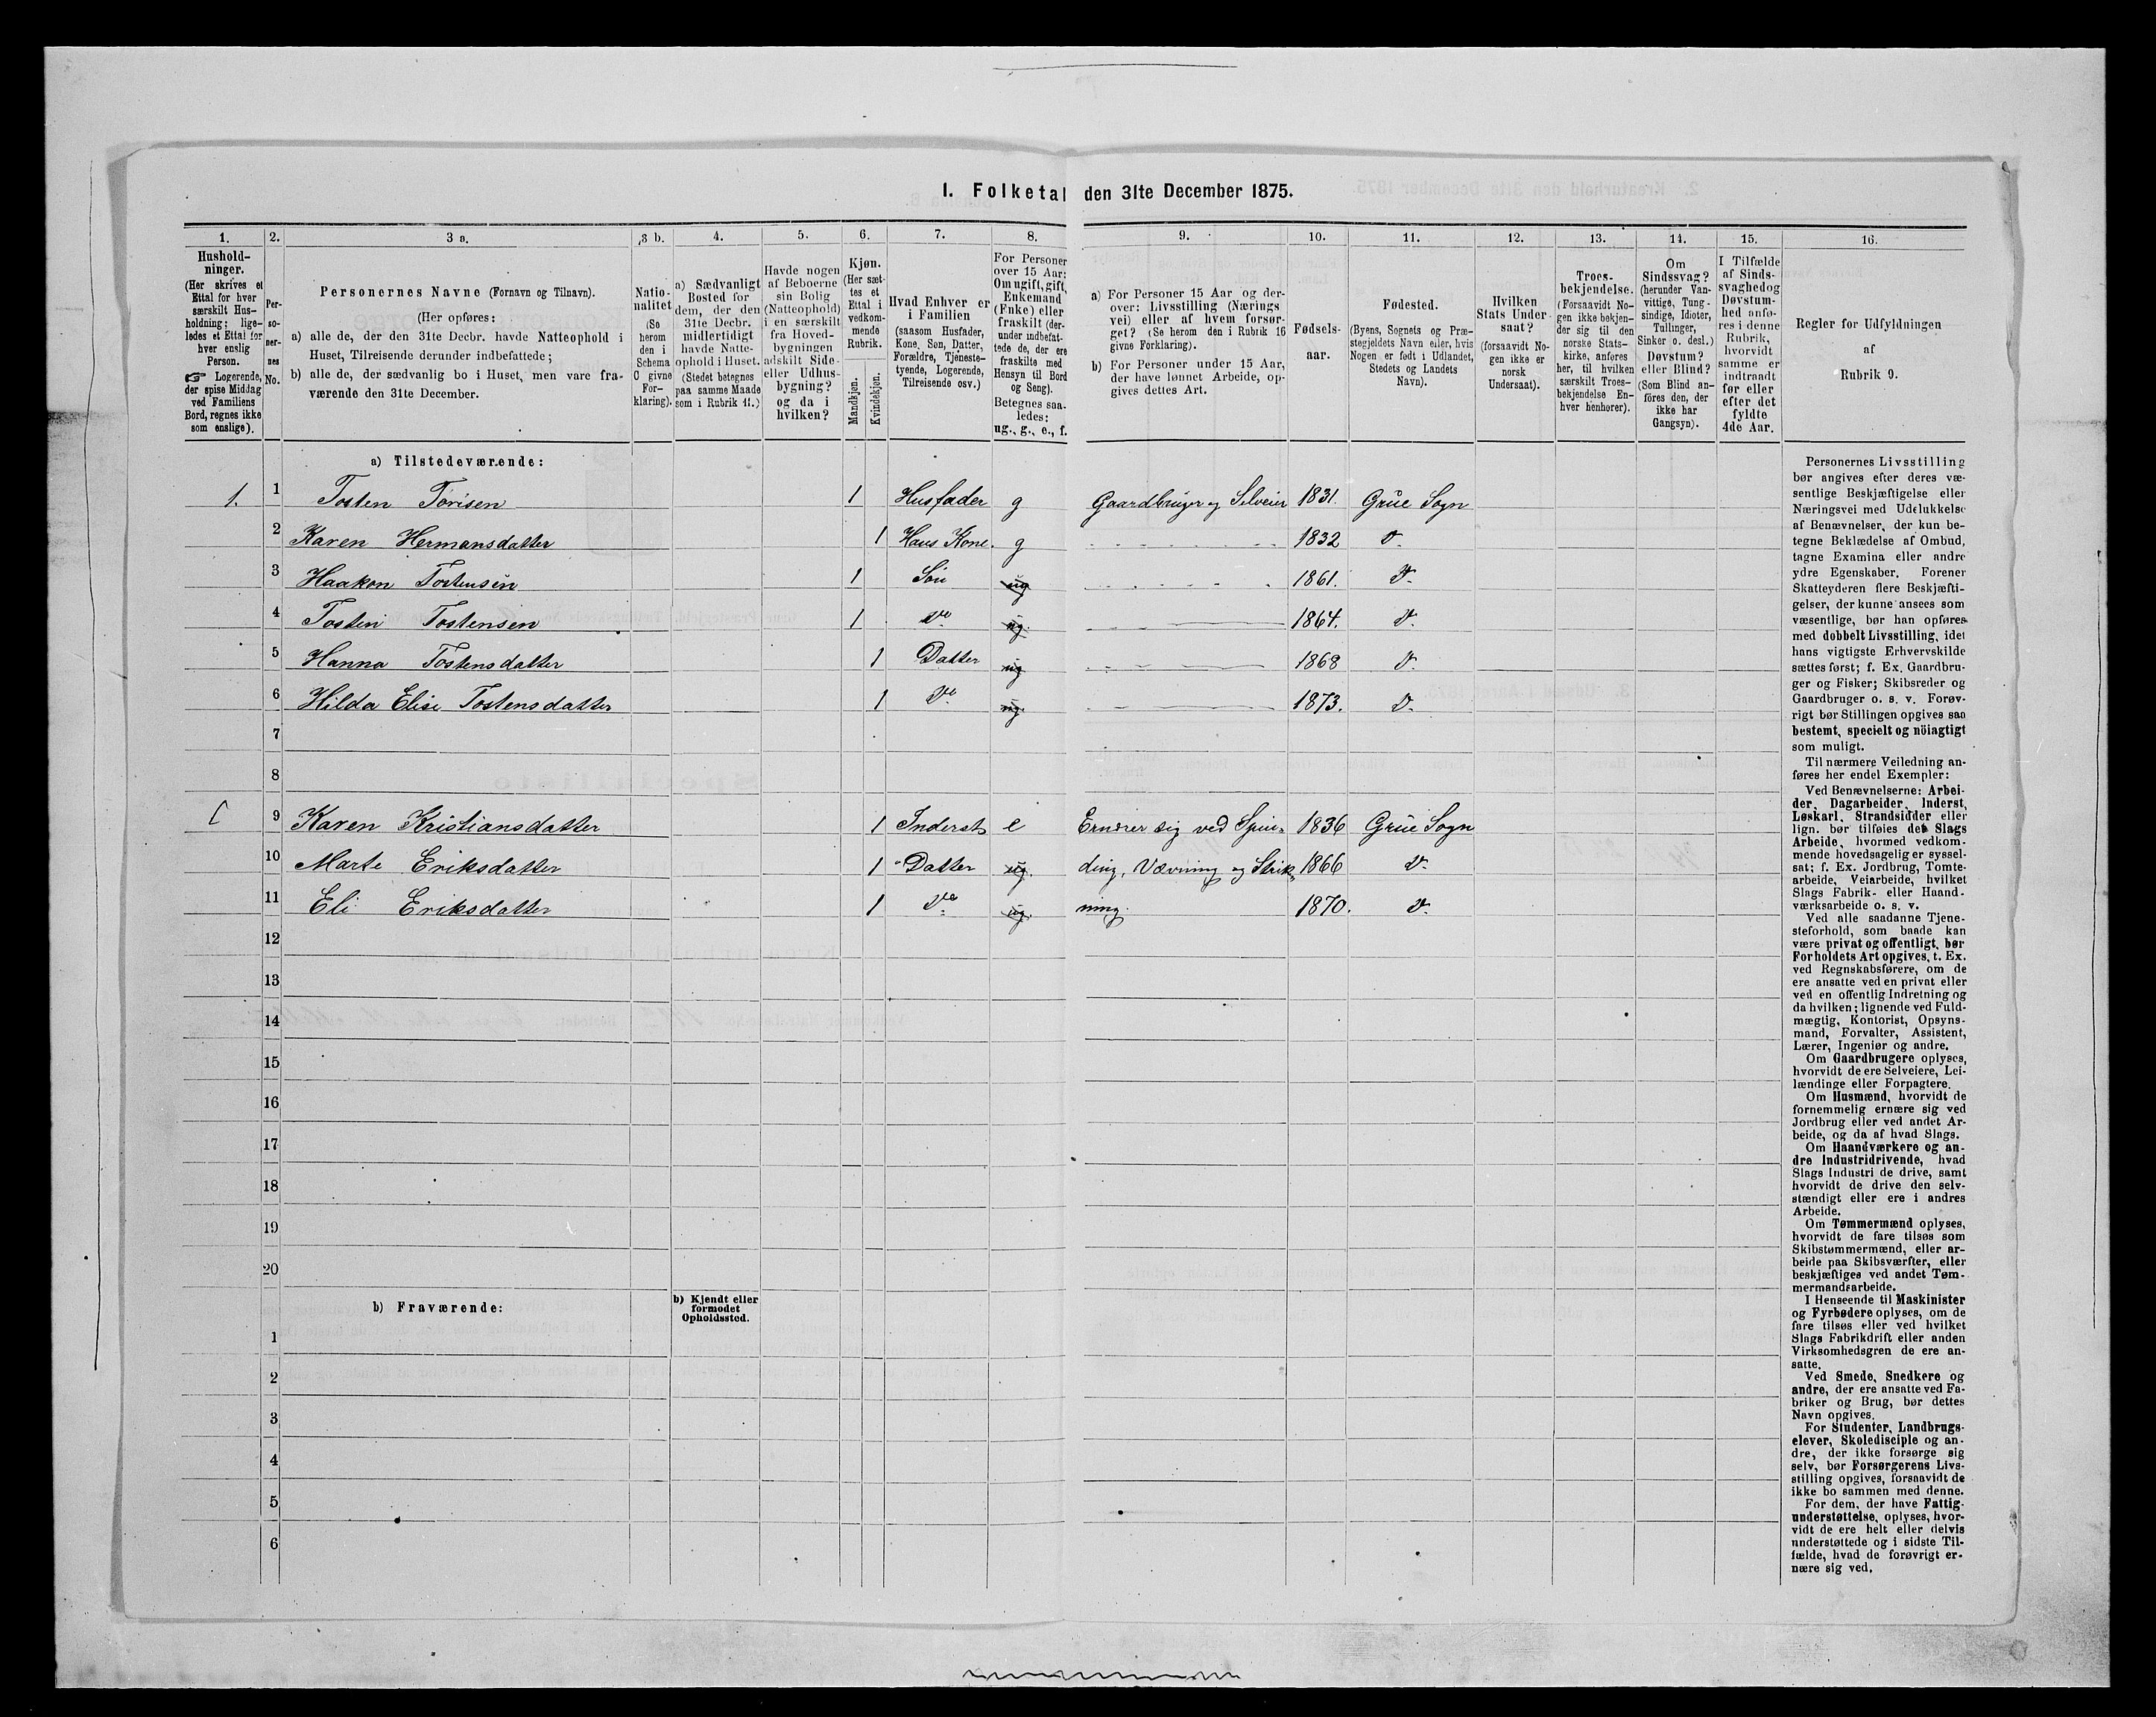 1. Folketal den 31te December 1875.
1.
2.
3 a.
3 b.
4.
5.
6.
7.
8.
9.
10.
11.
12.
13.
14.
15.
16.
Hushold-
ninger.
(Her skrives et
Ettal for hver
særskilt Hus-
holdning; lige-
ledes et Ettal for
hver enslig
Person.
☞ Logerende,
der spise Middag
ved Familiens
Bord, regnes ikke
som enslige).
Per-
so-
ner-
nes
No.
Personernes Navne (Fornavn og Tilnavn).
(Her opføres:
a) alle de, der den 31te Decbr. havde Natteophold i
Huset, Tilreisende derunder indbefattede;
b) alle de, der sædvanlig bo i Huset, men vare fra-
værende den 31te December.
Natio-
nalitet
(Se
herom
den i
Schema
C givne
For-
klaring).
a) Sædvanligt
Bosted for
dem, der den
31te Decbr.
midlertidigt
havde Natte-
ophold i Huset.
(Stedet betegnes
paa samme Maade
som i Rubrik 11.)
Havde nogen
af Beboerne
sin Bolig
(Natteophold)
i en særskilt
fra Hoved-
bygningen
adskilt Side-
eller Udhus-
bygning?
og da i
hvilken?
Kjøn.
(Her sæt-
tes et
Ettal i
vedkom-
mende
Rubrik.
Mandkjøn.
Kvindekjøn.
Hvad Enhver er
i Familien
(saasom Husfader,
Kone, Søn, Datter,
Forældre, Tjeneste-
tyende, Logerende,
Tilreisende osv.)
For Personer
over 15 Aar:
Om ugift, gift,
Enkemand
(Enke) eller
fraskilt (der-
under indbefat-
tede de, der ere
fraskilte med
Hensyn til Bord
og Seng).
Betegnes saa-
ledes:
ug., g., e., f.
a) For Personer 15 Aar og der-
over: Livsstilling (Nærings-
vei) eller af hvem forsør-
get? (Se herom den i Rubrik 16
givne Forklaring).
b) For Personer under 15 Aar,
der have lønnet Arbeide, op-
gives dettes Art.
Fødsels-
aar.
Fødested.
(Byens, Sognets og Præ-
stegjeldets Navn eller, hvis
Nogen er født i Udlandet,
Stedets og Landets
Navn).
Hvilken
Stats Under-
saat?
(forsaavidt No-
gen ikke er
norsk
Undersaat).
Troes-
bekjendelse.
(Forsaavidt No-
gen ikke bekjen-
der sig til den
norske Stats-
kirke, anføres
her, til hvilken
særskilt Troes-
bekjendelse En-
hver henhører).
Om
Sindssvag?
(herunder Van-
vittige, Tung-
sindige, Idioter,
Tullinger,
Sinker o. desl.)
Døvstum?
eller Blind?
(Som Blind an-
føres den, der
ikke har
Gangsyn).
I Tilfælde
af Sinds-
svaghedog
Døvstum-
hed anfø-
res i denne
Rubrik,
hvorvidt
samme er
indtraadt
før eller
efter det
fyldte
4de Aar.
Regler for Udfyldningen
af
Rubrik 9.
a) Tilstedeværende:
1. 1 Tosten Torisen 1 Husfader g Gaardbruger og Selveier 1831. Grue Sogn
2 Karen Hermansdatter 1 Hans Kone. g 1832 D.
3 Haakon Tostensen 1 Søn ug 1861. D.
4 Tosten Tostensen 1 Do ug. 1864. D.
5 Hanna Tostensdatter 1 Datter ug 1868 D.
6 Hilda Elise Tostensdatter 1 Do ug. 1873. D.
7
8
9 Karen Kristiansdatter 1 Inderst e Ernærer sig ved Spin- 1836 Grue Sogn
10 Marte Eriksdatter 1 Datter ug. ding, Vævning og Strik- 1866 D.
11 Eli Eriksdatter 1 Do ug. ning. 1870. D.
12
13
14
15
16
17
18
19
20
b) Fraværende:
b) Kjendt eller
formodet
Opholdssted.
1
2
3
4
5
6
Personernes Livsstilling
bør angives efter deres væ-
sentlige Beskjæftigelse eller
Næringsvei med Udelukkelse
af Benævnelser, der kun be-
tegne Beklædelse af Ombud,
tagne Examina eller andre
ydre Egenskaber. Forener
Skatteyderen flere Beskjæfti-
gelser, der kunne ansees som
væsentlige, bør han opføres
med dobbelt Livsstilling, idet
hans vigtigste Erhvervskilde
sættes først; f. Ex. Gaardbru-
ger og Fisker; Skibsreder og
Gaardbruger o. s. v. Forøv-
rigt bør Stillingen opgives saa
bestemt, specielt og nöiagtigt
som muligt.
Til nærmere Veiledning an-
føres her endel Exempler:
Ved Benævnelserne: Arbei-
der, Dagarbeider, Inderst,
Løskarl, Strandsidder eller
lign. bør tilføies det Slags
Arbeide, hvormed vedkom-
mende hovedsagelig er syssel-
sat; f. Ex. Jordbrug, Tomte-
arbeide, Veiarbeide, hvilket
Slags Fabrik- eller Haand-
værksarbeide o. s. v.
Ved alle saadanne Tjene-
steforhold, som baade kan
være privat og offentligt, bør
Forholdets Art opgives, t. Ex.
ved Regnskabsførere, om de
ere ansatte ved en privat eller
ved en offentlig Indretning og
da hvilken; lignende ved Fuld-
mægtig, Kontorist, Opsyns-
mand, Forvalter, Assistent,
Lærer, Ingeniør og andre.
Om Gaardbrugere oplyses,
hvorvidt de ere Selveiere, Lei-
lændinge eller Forpagtere.
Om Husmænd, hvorvidt de
fornemmelig ernære sig ved
Jordbrug eller ved andet Ar-
beide, og da af hvad Slags.
Om Haandværkere og an-
dre Industridrivende, hvad
Slags Industri de drive, samt
hvorvidt de drive den selv-
stændigt eller ere i andres
Arbeide.
Om Tømmermænd oplyses,
hvorvidt de fare tilsøs som
Skibstømmermænd, eller ar-
beide paa Skibsværfter, eller
beskjæftiges ved andet Tøm-
mermandsarbeide.
I Henseende til Maskinister
og Fyrbødere oplyses, om de
fare tilsøs eller ved hvilket
Slags Fabrikdrift eller anden
Virksomhedsgren de ere an-
satte.
Ved Smede, Snedkere og
andre, der ere ansatte ved Fa-
briker og Brug, bør dettes
Navn opgives.
For Studenter, Landbrugs-
elever, Skoledisciple og an-
dre, der ikke forsørge sig
selv, bør Forsørgerens Livs-
stilling opgives, forsaavidt de
ikke bo sammen med denne.
For dem, der have Fattig-
understøttelse, oplyses, hvor-
vidt de ere helt eller delvis
understøttede og i sidste Til-
fælde, hvad de forøvrigt er-
nære sig ved.